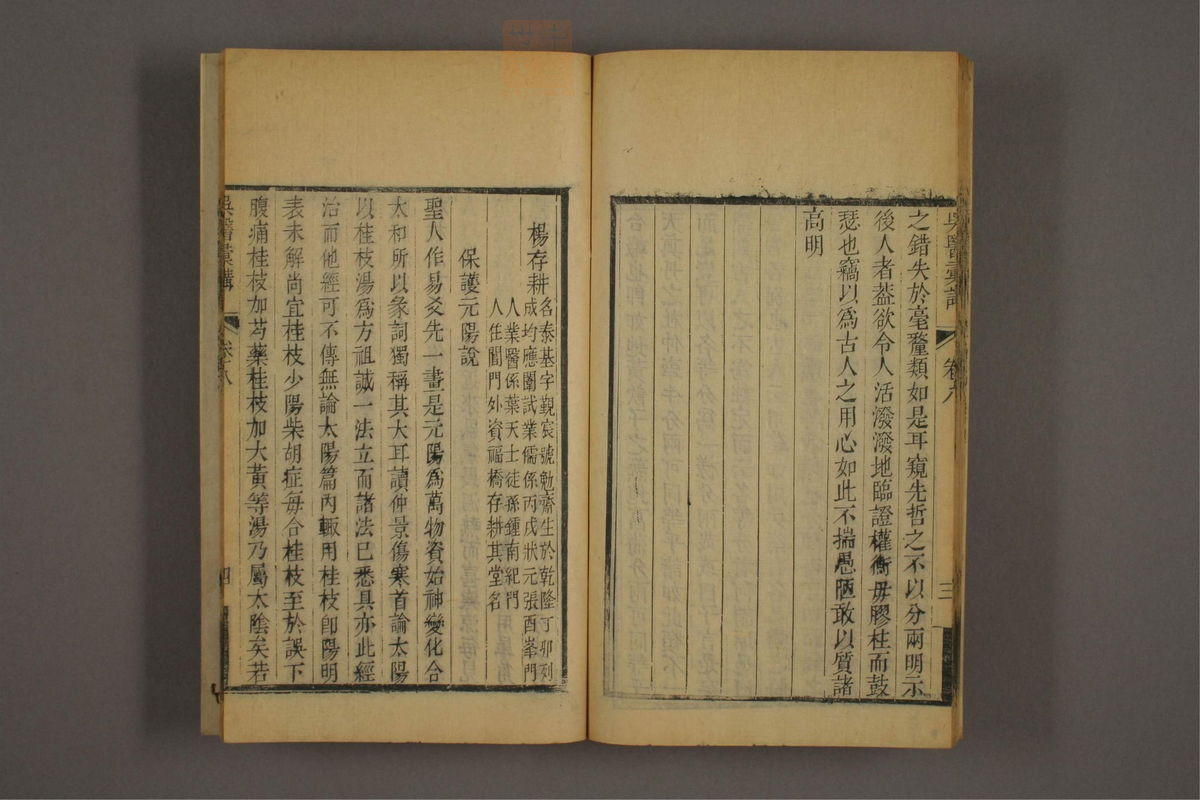 吳醫彙講
卷八
三
之錯失於毫釐類如是耳窺先哲之不以分兩明示
後人者蓋欲令人活潑潑地臨證權衡毋膠柱而鼓
瑟也竊以爲古人之用心如此不揣愚陋敢以質諸
高明
楊存耕
名泰基字覲宸號勉齋生於乾隆丁卯列
成均應闈試業儒係丙戌狀元張酉峯門
人業醫係葉天士徒孫鍾南紀門
人住閶門外資福橋存耕其堂名
保護元陽說
聖人作易爻先一畫是元陽爲萬物資始神變化合
太和所以彖詞獨稱其大耳讀仲景傷寒首論太陽
以桂枝湯爲方祖誠一法立而諸法已悉具亦此經
治而他經可不傳無論太陽篇內輒用桂枝卽陽明
表未解尚宜桂枝少陽柴胡症每合桂枝至於誤下
腹痛桂枝加芍藥桂枝加大黃等湯乃屬太陰矣若
吳醫彙講
卷八
四